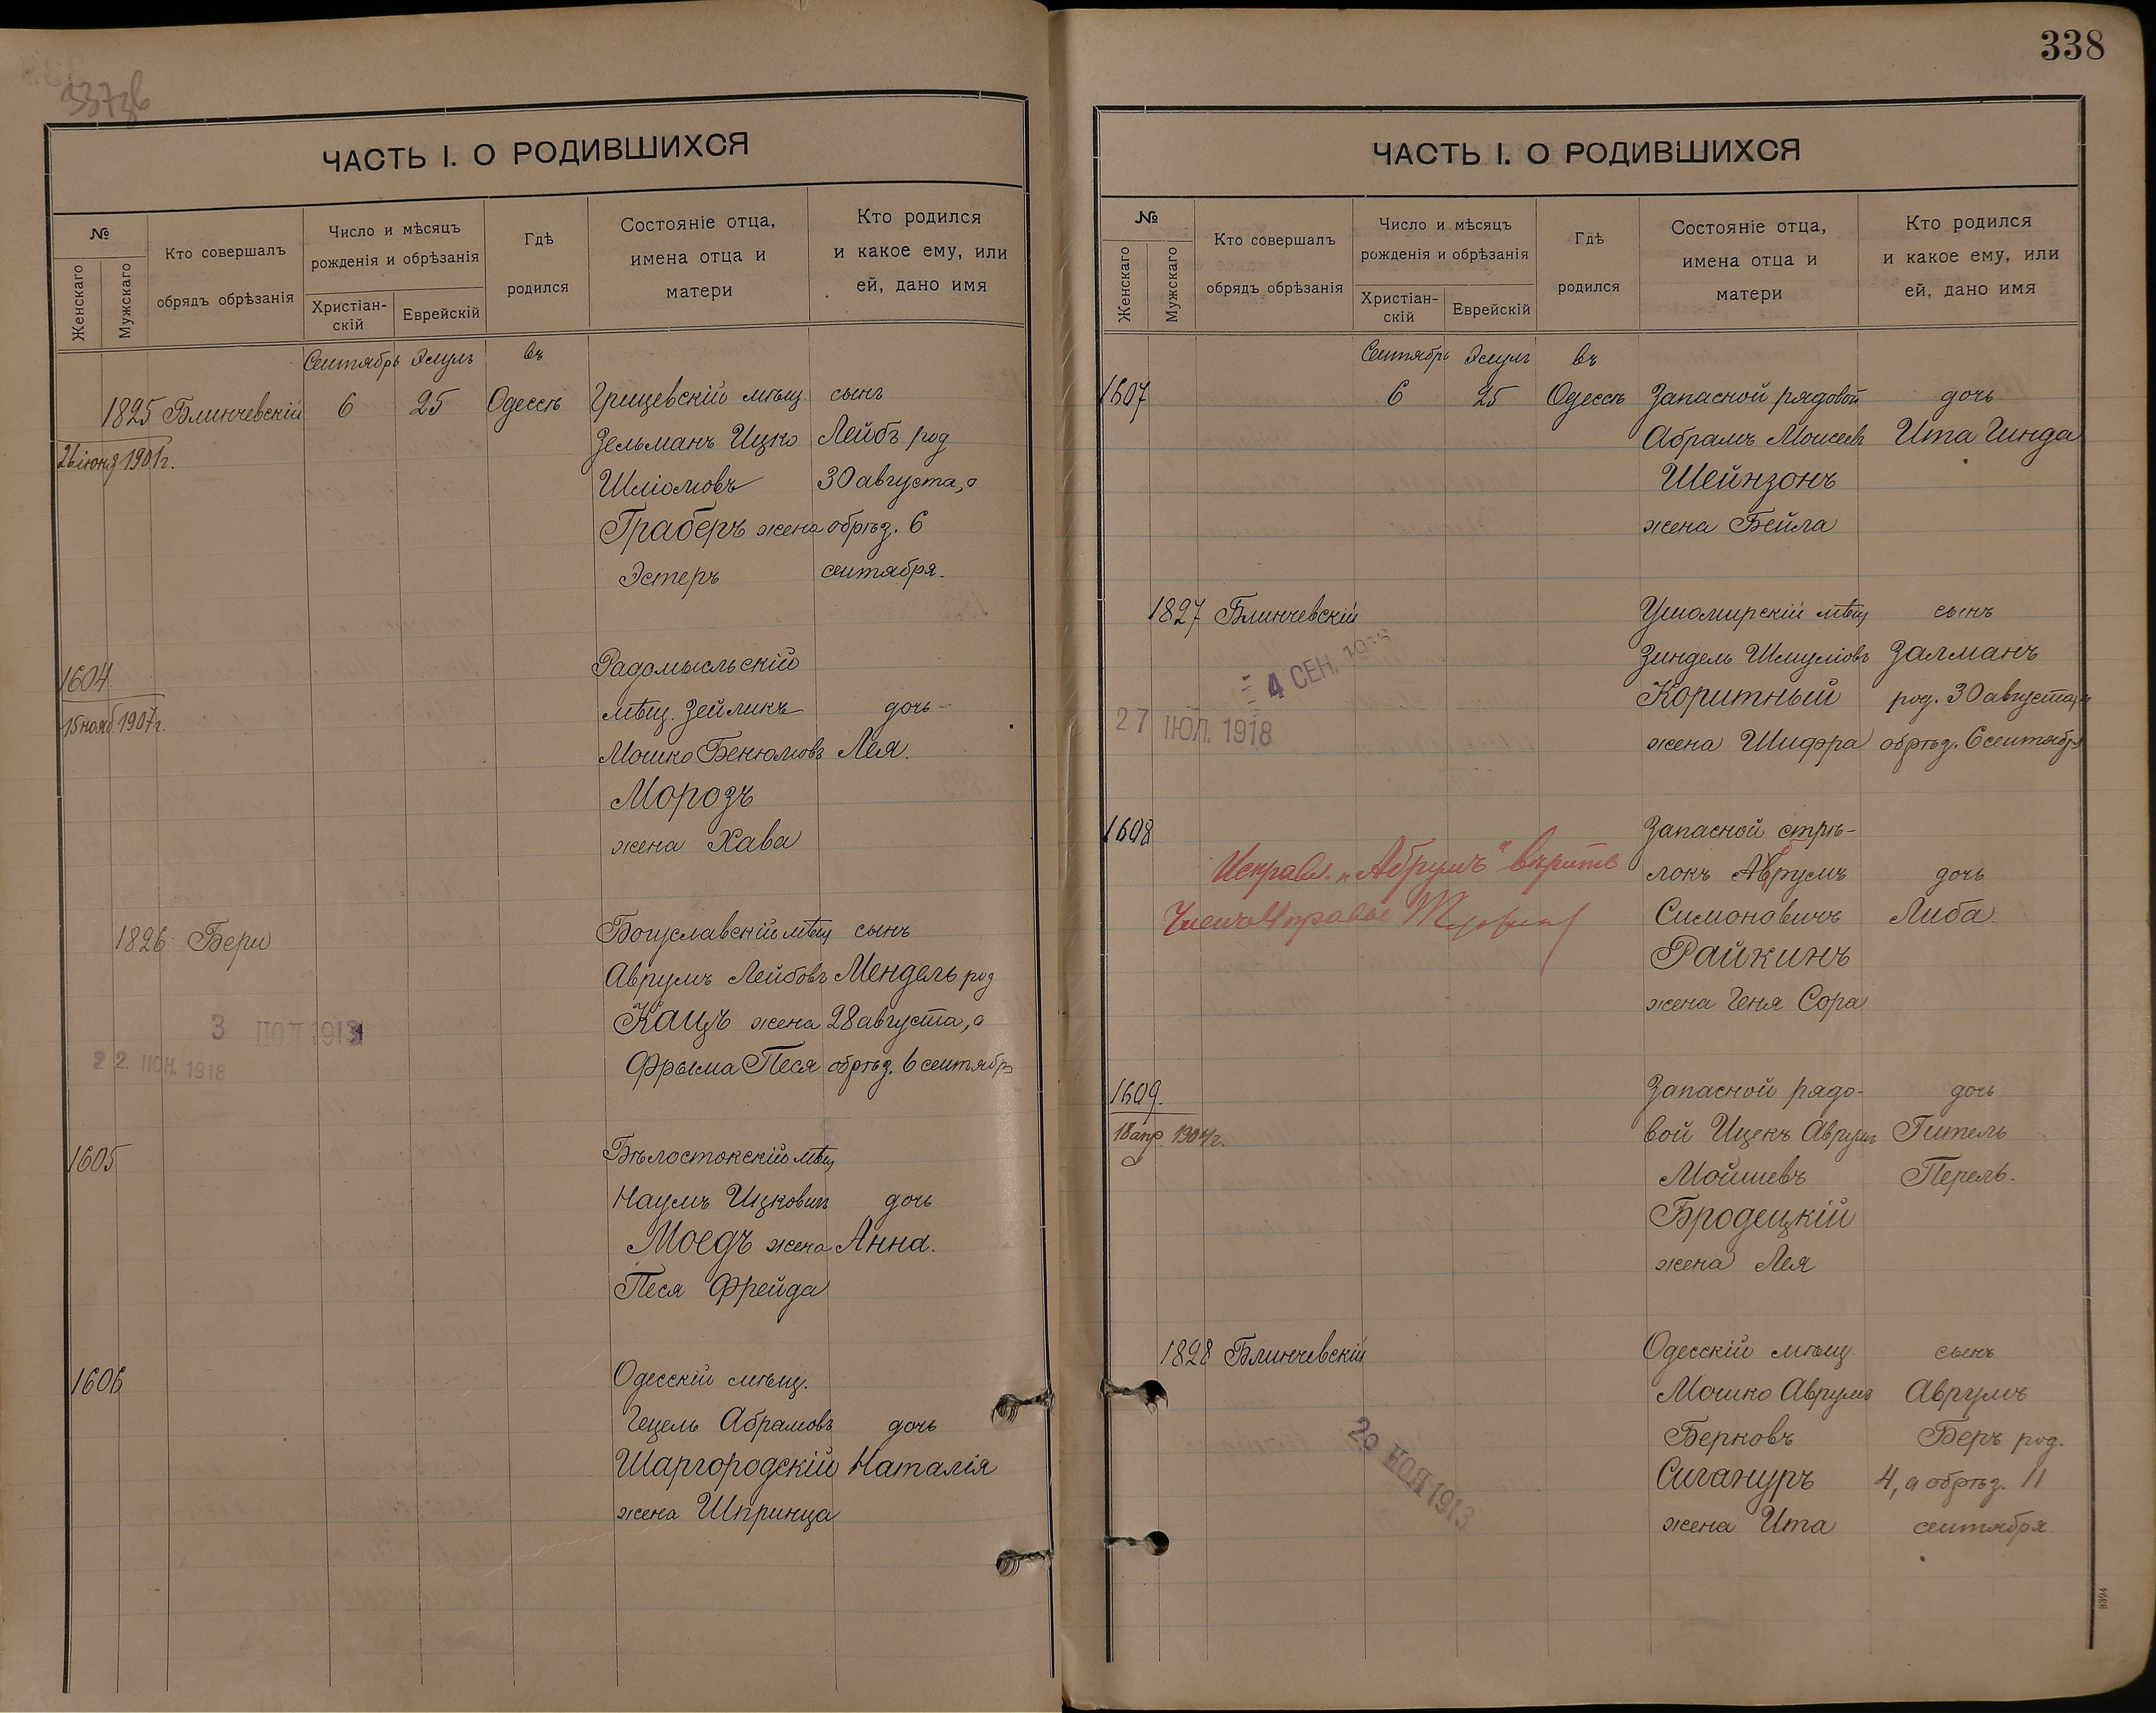 337зв
ЧАСТЬ I. О РОДИВШИХСЯ
№
Женскаго
Мужскаго
Кто совершалъ
обрядъ обрѣзанія
Число и мѣсяцъ
рожденія и обрѣзанія
Христіан-
скій
Еврейскій
Гдѣ
родился
Состояніе отца,
имена отца и
матери
Кто родился
и какое ему, или
ей, дано имя
Сентябрь Элулъ въ
1825 Блинчевскій 6 25 Одессѣ Грицевскій мѣщ. сынъ
26 іюня 1901г.
Зельманъ Ицко Лейбъ род
Шліомовъ 30 августа, а
Граберъ жена обрѣз. 6
Эстеръ сентября.
1604
15 нояб 1907г.
Радомысльскій
мѣщ. Зейликъ дочь
Мошко Бенюмовъ Лея.
Морозъ
жена Хава
1826 Бери Богуславскій мѣщ сынъ
Аврумъ Лейбовъ Мендель род
Кацъ жена 28 августа, а
Фрыма Песя обрѣз. 6 сентябр
3 ІЮЛ 1913
22 ІЮН. 1918
1605 Бѣлостокскій мѣщ
Наумъ Ицковичъ дочь
Моедъ жена Анна.
Песя Фрейда
1606 Одесскій мѣщ.
Гецель Абрамовъ дочь
Шаргородскій Наталія
жена Шпринца
338
ЧАСТЬ I. О РОДИВШИХСЯ
№
Женскаго
Мужскаго
Кто совершалъ
обрядъ обрѣзанія
Число и мѣсяцъ
рожденія и обрѣзанія
Христіан-
скій
Еврейскій
Гдѣ
родился
Состояніе отца,
имена отца и
матери
Кто родился
и какое ему, или
ей, дано имя
Сентябрь Элулъ въ
1607 6 25 Одессѣ Запасной рядовой дочь
Абрамъ Моисеевъ Ита Гинда
Шейнзонъ
жена Бейла
1827 Блинчевскій Ушомирскій мѣщ сынъ
Зиндель Шмуліовъ Залманъ
Коритный род. 30 августа, а
жена Шифра обрѣз. 6 сентябр
4 СЕН.
27 ІЮЛ. 1918
1608 Запасной стрѣ-
локъ Абрумъ дочь
Симоновичъ Либа
Райкинъ
жена Геня Сора
Исправл. „Абрумъ" вѣрить
Членъ Управы
1609.
18 апр. 1904г.
Запасной рядо- дочь
вой Ицекъ Аврумъ Гитель
Мойшевъ Перель.
Бродецкій
жена Лея
1828 Блинчевскій Одесскій мѣщ. сынъ
Мошко Аврумъ Аврумъ
Берковъ Беръ род.
Сигануръ 4, а обрѣз. 11
жена Ита сентября
29 НОЯ 1913